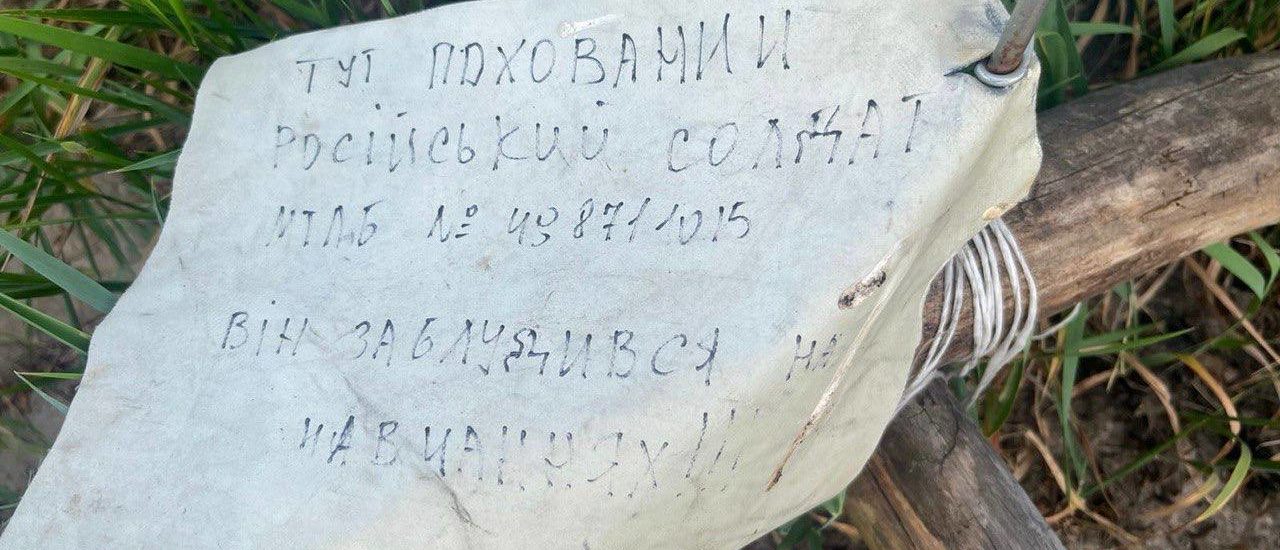 ТУТ ПОХОВАНИЙ
РОСІЙСЬКИЙ СОЛДАТ
МТЛБ № 438711015
ВІН ЗАБЛУДИВСЯ НА
НАВЧАННЯХ!!!